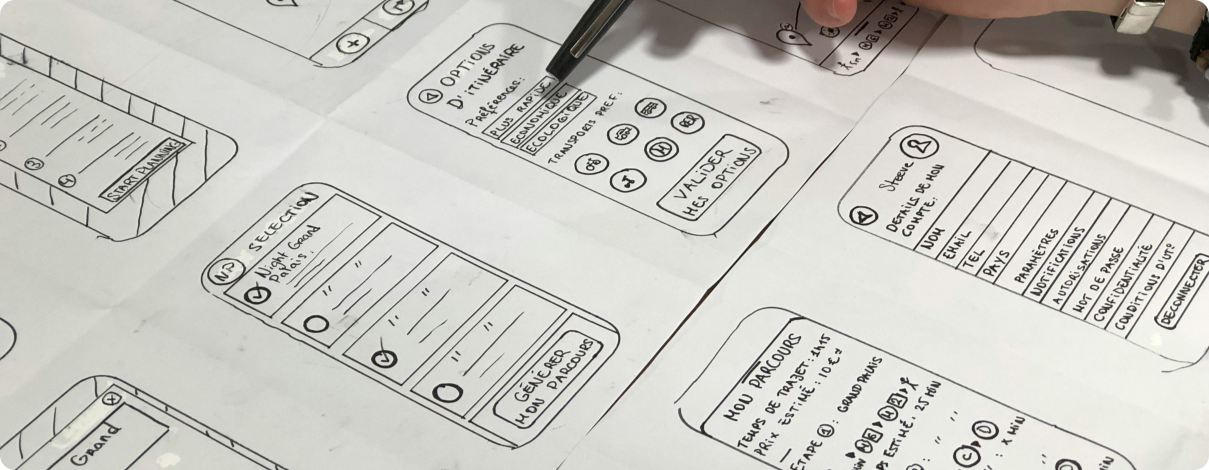 START PLANNING
3
4
OPTIONS
D'ITINÉRAIRE
Préférences:
PLUS RAPIDE
ECONOMIQUE
ECOLOGIQUE
TRANSPORTS PREF:
RER
M
VALIDER
MES OPTIONS
SELECTION
Night Grand
Palais.
"
"
"
"
"
GÉNÉRER
MON PARCOURS
Grand
Steeve
DETAILS DE MON
COMPTE:
NOM
EMAIL
TEL
PAYS
PARAMÈTRES
NOTIFICATIONS
AUTORISATIONS
MOT DE PASSE
CONFIDENTIALITÉ
CONDITIONS D'UT°
DECONNECTER
MON PARCOURS
TEMPS DE TRAJET: 1H15
PRIX ESTIMÉ: 10€
ETAPE 1: GRAND PALAIS
ESTIMÉ: 25 MIN
: " "
C D
: X MIN